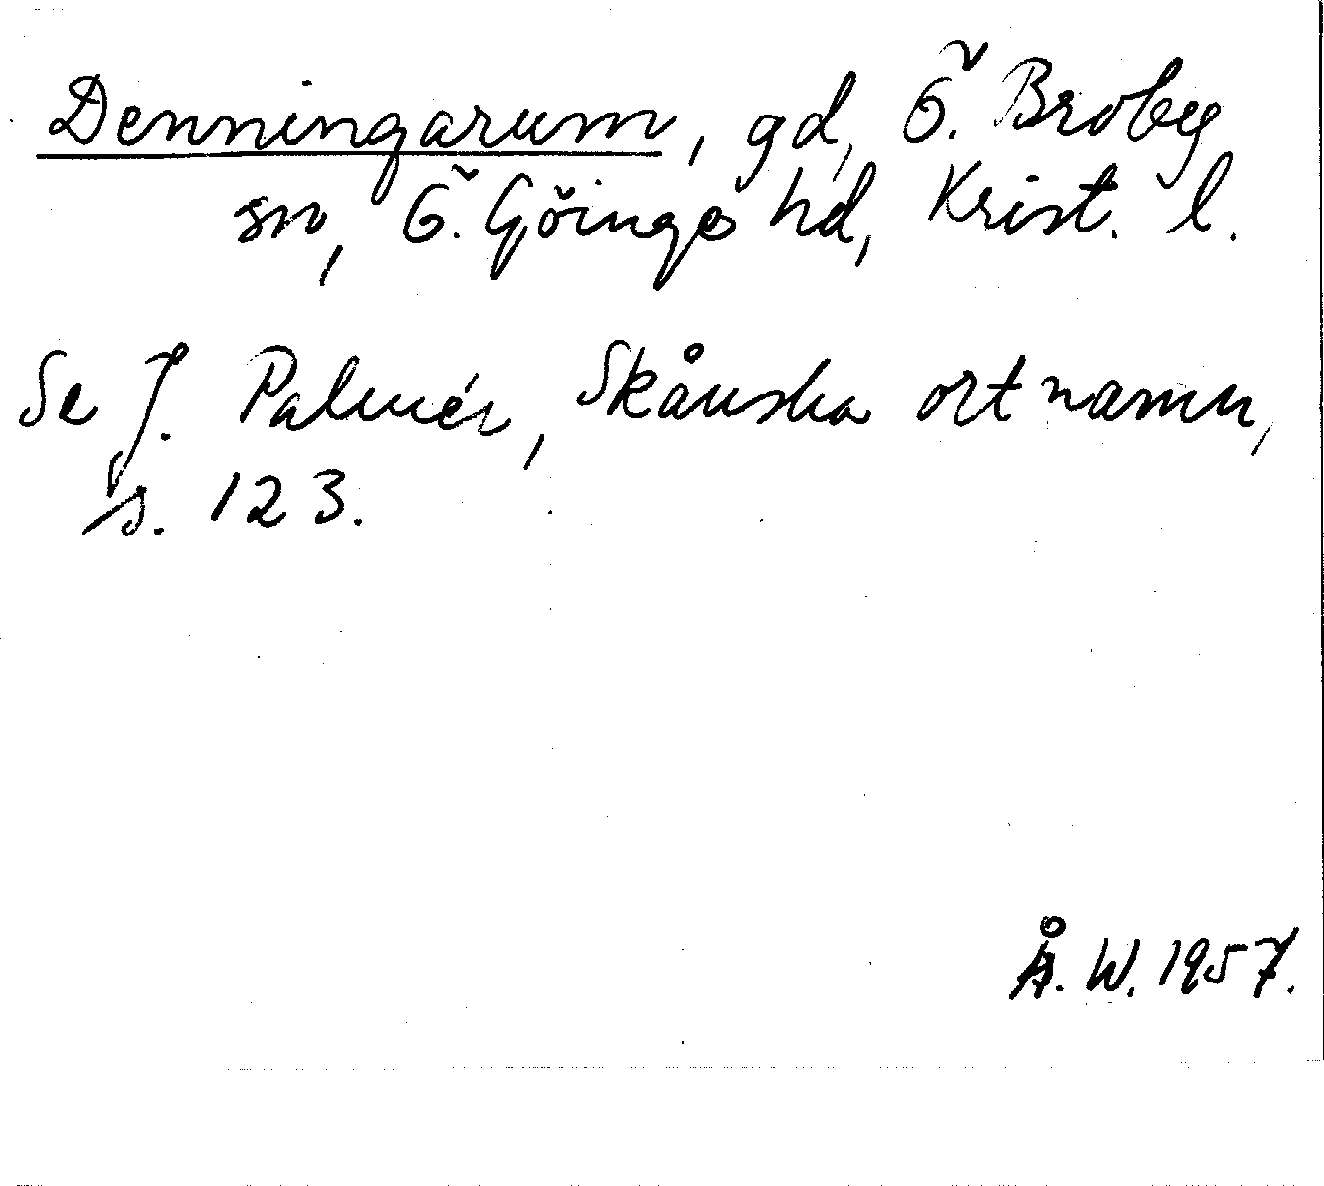 Denningarum, gd, Ö. Broby
sn, Ö. Göinge hd, Krist. l.
Se J. Palmér, Skånska ortnamn,
s. 123.
Å. W. 1957.